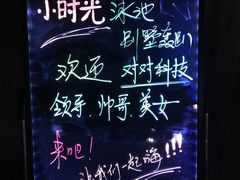 小时光 泳池
别墅轰趴
欢迎 对对科技
领导、帅哥、美女
来吧！
让我们一起嗨!!!